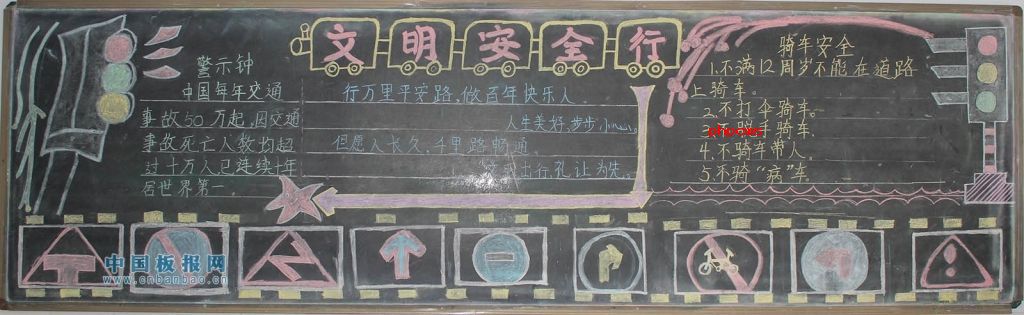 文明安全行
警示钟
中国每年交通
事故50万起,因交通
事故死亡人数均超
过十万人已连续十年
居世界第一。
行万里平安路,做百年快乐人。
人生美好,步步小心。
但愿人长久,千里路畅通。
出行,礼让为先。
骑车安全
1.不满12周岁不能在道路
上骑车。
2.不打伞骑车。
骑车.
4.不骑车带人。
5.不骑“病”车
中国板报网
www.cnbanbao.cn